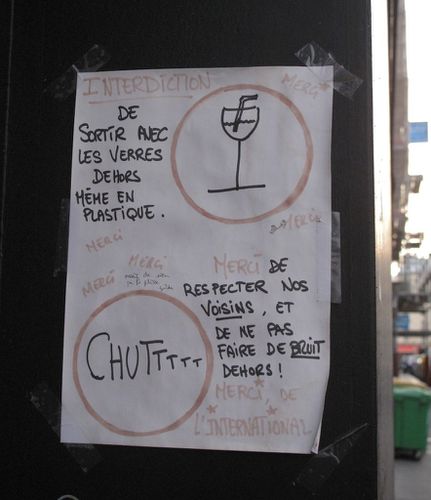 INTERDICTION
MERCI
DE
SORTIR AVEC
LES VERRES
DEHORS
MÊME EN
PLASTIQUE.
MERCI
MERCI
MERCI
MERCI
MERCI DE
RESPECTER NOS
VOISINS, ET
DE NE PAS
FAIRE DE BRUIT
DEHORS !
CHUTTTTT
MERCI, DE
L'INTERNATIONAL